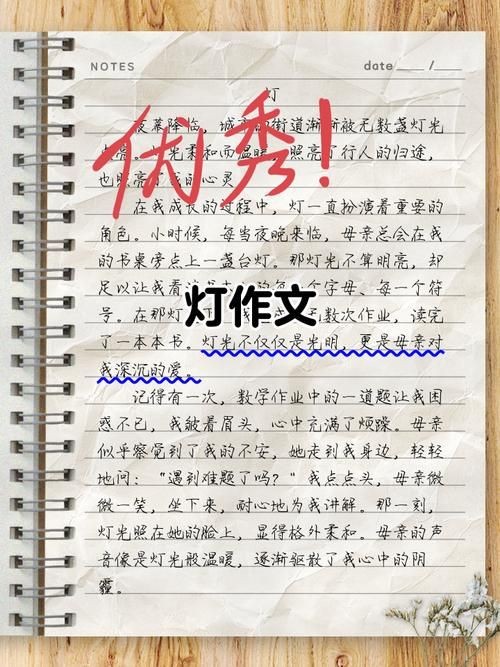 NOTES
date ___ / ___
灯
夜幕降临，城市的街道渐渐被无数盏灯光
光柔和而温暖，照亮了行人的归途，
也照亮了我的心灵
优秀！
在我成长的过程中，灯一直扮演着重要的
角色。小时候，每当夜晚来临，母亲总会在我
的书桌旁点上一盏台灯。那灯光不算明亮，却
足以让我看清 个字母、每一个符
灯作文
号。在那灯 我 数次作业，读完
了一本本书。灯光不仅仅是光明，更是母亲对
我深沉的爱。
记得有一次，数学作业中的一道题让我困
惑不已，我皱着眉头，心中充满了烦躁。母亲
似乎察觉到了我的不安，她走到我身边，轻轻
地问：“遇到难题了吗？”我点点头，母亲微
微一笑，坐下来，耐心地为我讲解。那一刻，
灯光照在她的脸上，显得格外柔和。母亲的声
音像是灯光般温暖，逐渐驱散了我心中的阴
霾。